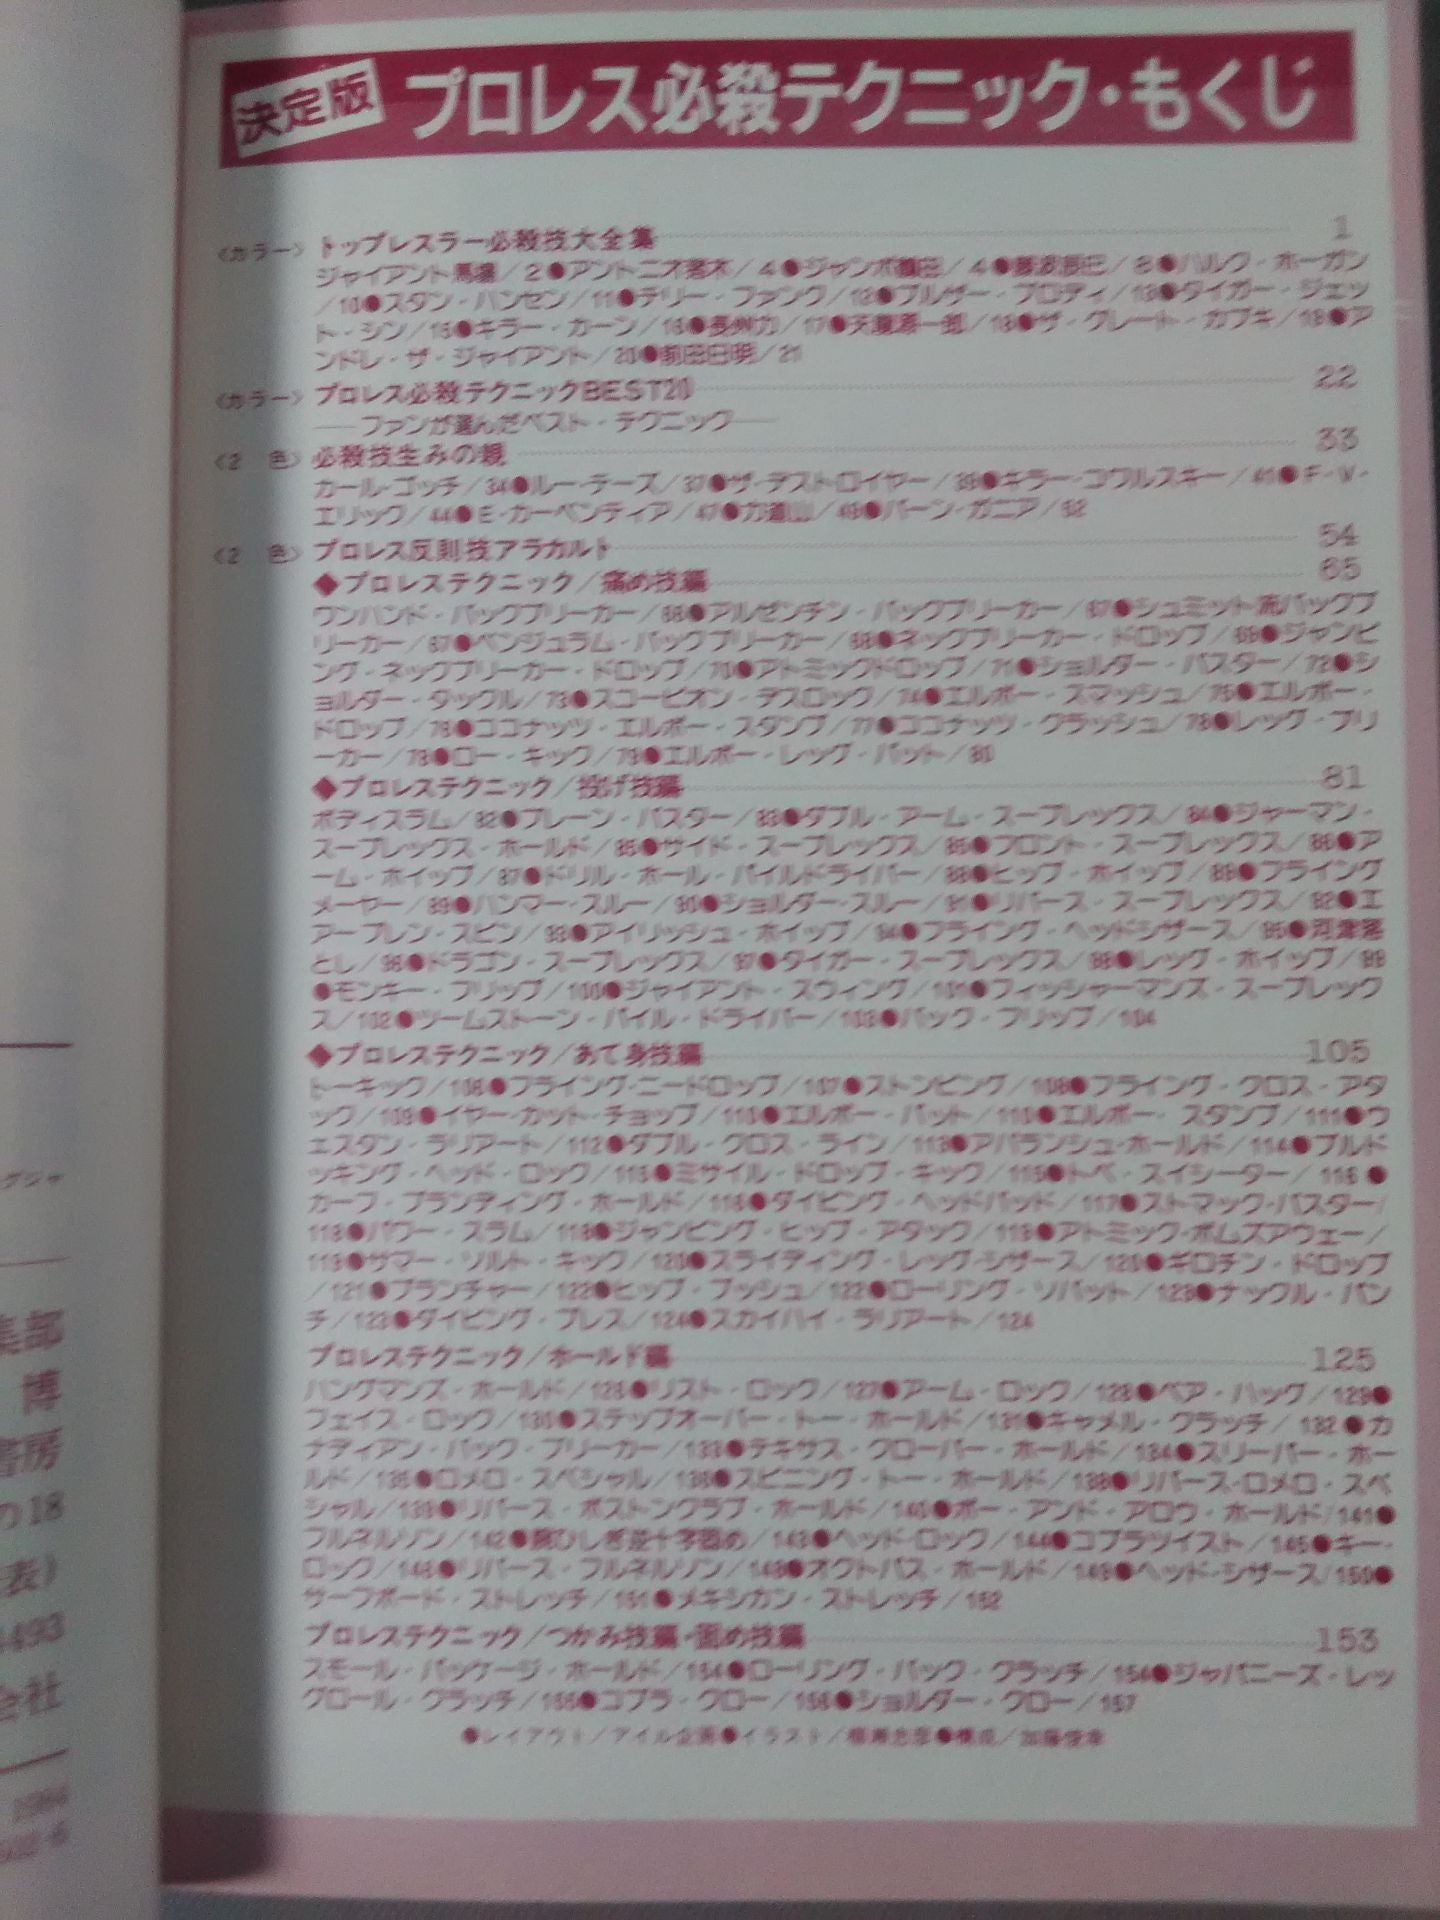 決定版 プロレス必殺テクニック・もくじ
〈カラー〉 トップレスラー必殺技大全集 1
ジャイアント馬場/2●アントニオ猪木/4●ジャンボ鶴田/ ●藤波辰巳/8●ハルク・ホーガン
/10●スタン・ハンセン/11●テリー・ファンク/12●ブルザー・ブロディ/13●タイガー・ジェッ
ト・シン/15●キラー・カーン/16●長州力/17●天龍源一郎/18●ザ・グレート・カブキ/19●ア
ンドレ・ザ・ジャイアント/20●前田日明/21
〈カラー〉 プロレス必殺テクニックBEST20 22
―ファンが選んだベスト・テクニック―
〈2 色〉 必殺技生みの親 33
カール・ゴッチ/34●ルー・テーズ/37●ザ・デストロイヤー/39●キラー・コワルスキー/41●F・V・
エリック/44●E・カーペンティア/47●力道山/49●バーン・ガニア/52
〈2 色〉 プロレス反則技アラカルト 54
◆プロレステクニック/痛め技編 65
ワンハンド・バックブリーカー/66●アルゼンチン・バックブリーカー/67●シュミット流バックブ
リーカー/67●ペンジュラム・バックブリーカー/68●ネックブリーカー・ドロップ/69●ジャンピ
ング・ネックブリーカー・ドロップ/70●アトミックドロップ/71●ショルダー・バスター/72●シ
ョルダー・タックル/73●スコーピオン・デスロック/74●エルボー・スマッシュ/75●エルボー・
ドロップ/76●ココナッツ・エルボー・スタンプ/77●ココナッツ・クラッシュ/78●レッグ・ブリ
ーカー/ ●ロー・キック/79●エルボー・レッグ・バット/80
◆プロレステクニック/投げ技編 81
ボディスラム/82●ブレーン・バスター/83●ダブル・アーム・スープレックス/84●ジャーマン・
スープレックス・ホールド/85●サイド・スープレックス/ ●フロント・スープレックス/86●ア
ーム・ホイップ/87●ドリル・ホール・パイルドライバー/88●ヒップ・ホイップ/89●フライング
メーヤー/89●ハンマー・スルー/90●ショルダー・スルー/91●リバース・スープレックス/92●エ
アープレン・スピン/93●アイリッシュ・ホイップ/94●フライング・ヘッドシザース/95●河津落
とし/96●ドラゴン・スープレックス/97●タイガー・スープレックス/98●レッグ・ホイップ/99
●モンキー・フリップ/100●ジャイアント・スウィング/101●フィッシャーマンズ・スープレック
ス/102●ツームストーン・パイル・ドライバー/103●バック・フリップ/104
◆プロレステクニック/あて身技編 105
トーキック/106●フライング・ニードロップ/107●ストンピング/108●フライング・クロス・アタ
ック/109●イヤー・カット・チョップ/110●エルボー・バット/110●エルボー・スタンプ/111●ウ
エスタン・ラリアート/112●ダブル・クロス・ライン/113●アバランシュ・ホールド/114●ブルド
ッキング・ヘッド・ロック/115●ミサイル・ドロップ・キック/115●トペ・スイシーター/116●
カーフ・ブランディング・ホールド/116●ダイビング・ヘッドバッド/117●ストマック・バスター/
118●パワー・スラム/118●ジャンピング・ヒップ・アタック/119●アトミック・ボムズアウェー/
119●サマー・ソルト・キック/120●スライディング・レッグ・シザース/120●ギロチン・ドロップ
/121●プランチャー/122●ヒップ・プッシュ/122●ローリング・ソバット/123●ナックル・パン
チ/123●ダイビング・プレス/124●スカイハイ・ラリアート/124
プロレステクニック/ホールド編 125
ハングマンズ・ホールド/126●リスト・ロック/127●アーム・ロック/128●ベア・ハッグ/129●
フェイス・ロック/130●ステップオーバー・トー・ホールド/131●キャメル・クラッチ/132●カ
ナディアン・バック・ブリーカー/133●テキサス・クローバー・ホールド/134●スリーパー・ホー
ルド/135●ロメロ・スペシャル/136●スピニング・トー・ホールド/138●リバース・ロメロ・スペ
シャル/139●リバース・ボストンクラブ・ホールド/140●ボー・アンド・アロウ・ホールド/141●
フルネルソン/142●腕ひしぎ逆十字固め/143●ヘッド・ロック/144●コブラツイスト/145●キー・
ロック/146●リバース・フルネルソン/148●オクトパス・ホールド/149●ヘッド・シザース/150●
サーフボード・ストレッチ/151●メキシカン・ストレッチ/152
プロレステクニック/つかみ技編・固め技編 153
スモール・パッケージ・ホールド/154●ローリング・バック・クラッチ/154●ジャパニーズ・レッ
グロール・クラッチ/155●コブラ・クロー/156●ショルダー・クロー/157
●レイアウト/アイル企画●イラスト/ ●構成/加藤
グジャ
集部
博
書房
の18
表)
4493
会社